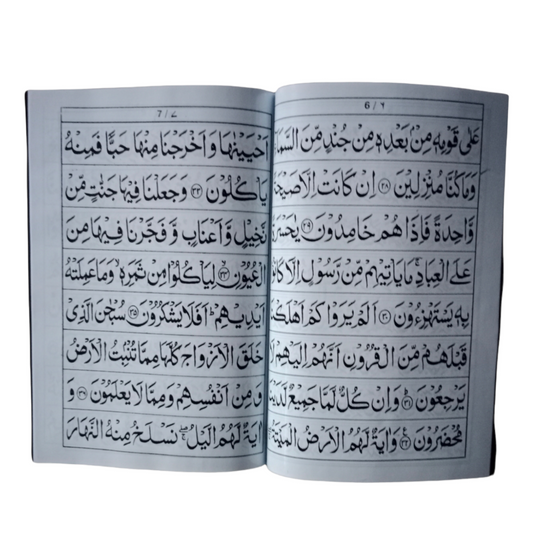 6 / ٦
عَلٰى قَوْمِهٖ مِنْۢ بَعْدِهٖ مِنْ جُنْدٍ مِّنَ السَّمَآءِ
وَمَا كُنَّا مُنْزِلِيْنَ ﴿٢٨﴾ اِنْ كَانَتْ اِلَّا صَيْحَةً
وَّاحِدَةً فَاِذَا هُمْ خَامِدُوْنَ ﴿٢٩﴾ يٰحَسْرَةً
عَلَى الْعِبَادِ ۚ مَا يَاْتِيْهِمْ مِّنْ رَّسُوْلٍ اِلَّا كَانُوْا
بِهٖ يَسْتَهْزِءُوْنَ ﴿٣٠﴾ اَلَمْ يَرَوْا كَمْ اَهْلَكْنَا
قَبْلَهُمْ مِّنَ الْقُرُوْنِ اَنَّهُمْ اِلَيْهِمْ لَا
يَرْجِعُوْنَ ﴿٣١﴾ وَاِنْ كُلٌّ لَّمَّا جَمِيْعٌ لَّدَيْنَا
مُحْضَرُوْنَ ﴿٣٢﴾ وَاٰيَةٌ لَّهُمُ الْاَرْضُ الْمَيْتَةُ
7 / ٧
اَحْيَيْنٰهَا وَاَخْرَجْنَا مِنْهَا حَبًّا فَمِنْهُ
يَاْكُلُوْنَ ﴿٣٣﴾ وَجَعَلْنَا فِيْهَا جَنّٰتٍ مِّنْ
نَّخِيْلٍ وَّاَعْنَابٍ وَّفَجَّرْنَا فِيْهَا مِنَ
الْعُيُوْنِ ﴿٣٤﴾ لِيَاْكُلُوْا مِنْ ثَمَرِهٖ ۙ وَمَا عَمِلَتْهُ
اَيْدِيْهِمْ ؕ اَفَلَا يَشْكُرُوْنَ ﴿٣٥﴾ سُبْحٰنَ الَّذِيْ
خَلَقَ الْاَزْوَاجَ كُلَّهَا مِمَّا تُنْۢبِتُ الْاَرْضُ
وَمِنْ اَنْفُسِهِمْ وَمِمَّا لَا يَعْلَمُوْنَ ﴿٣٦﴾ وَ
اٰيَةٌ لَّهُمُ الَّيْلُ ۖۚ نَسْلَخُ مِنْهُ النَّهَارَ